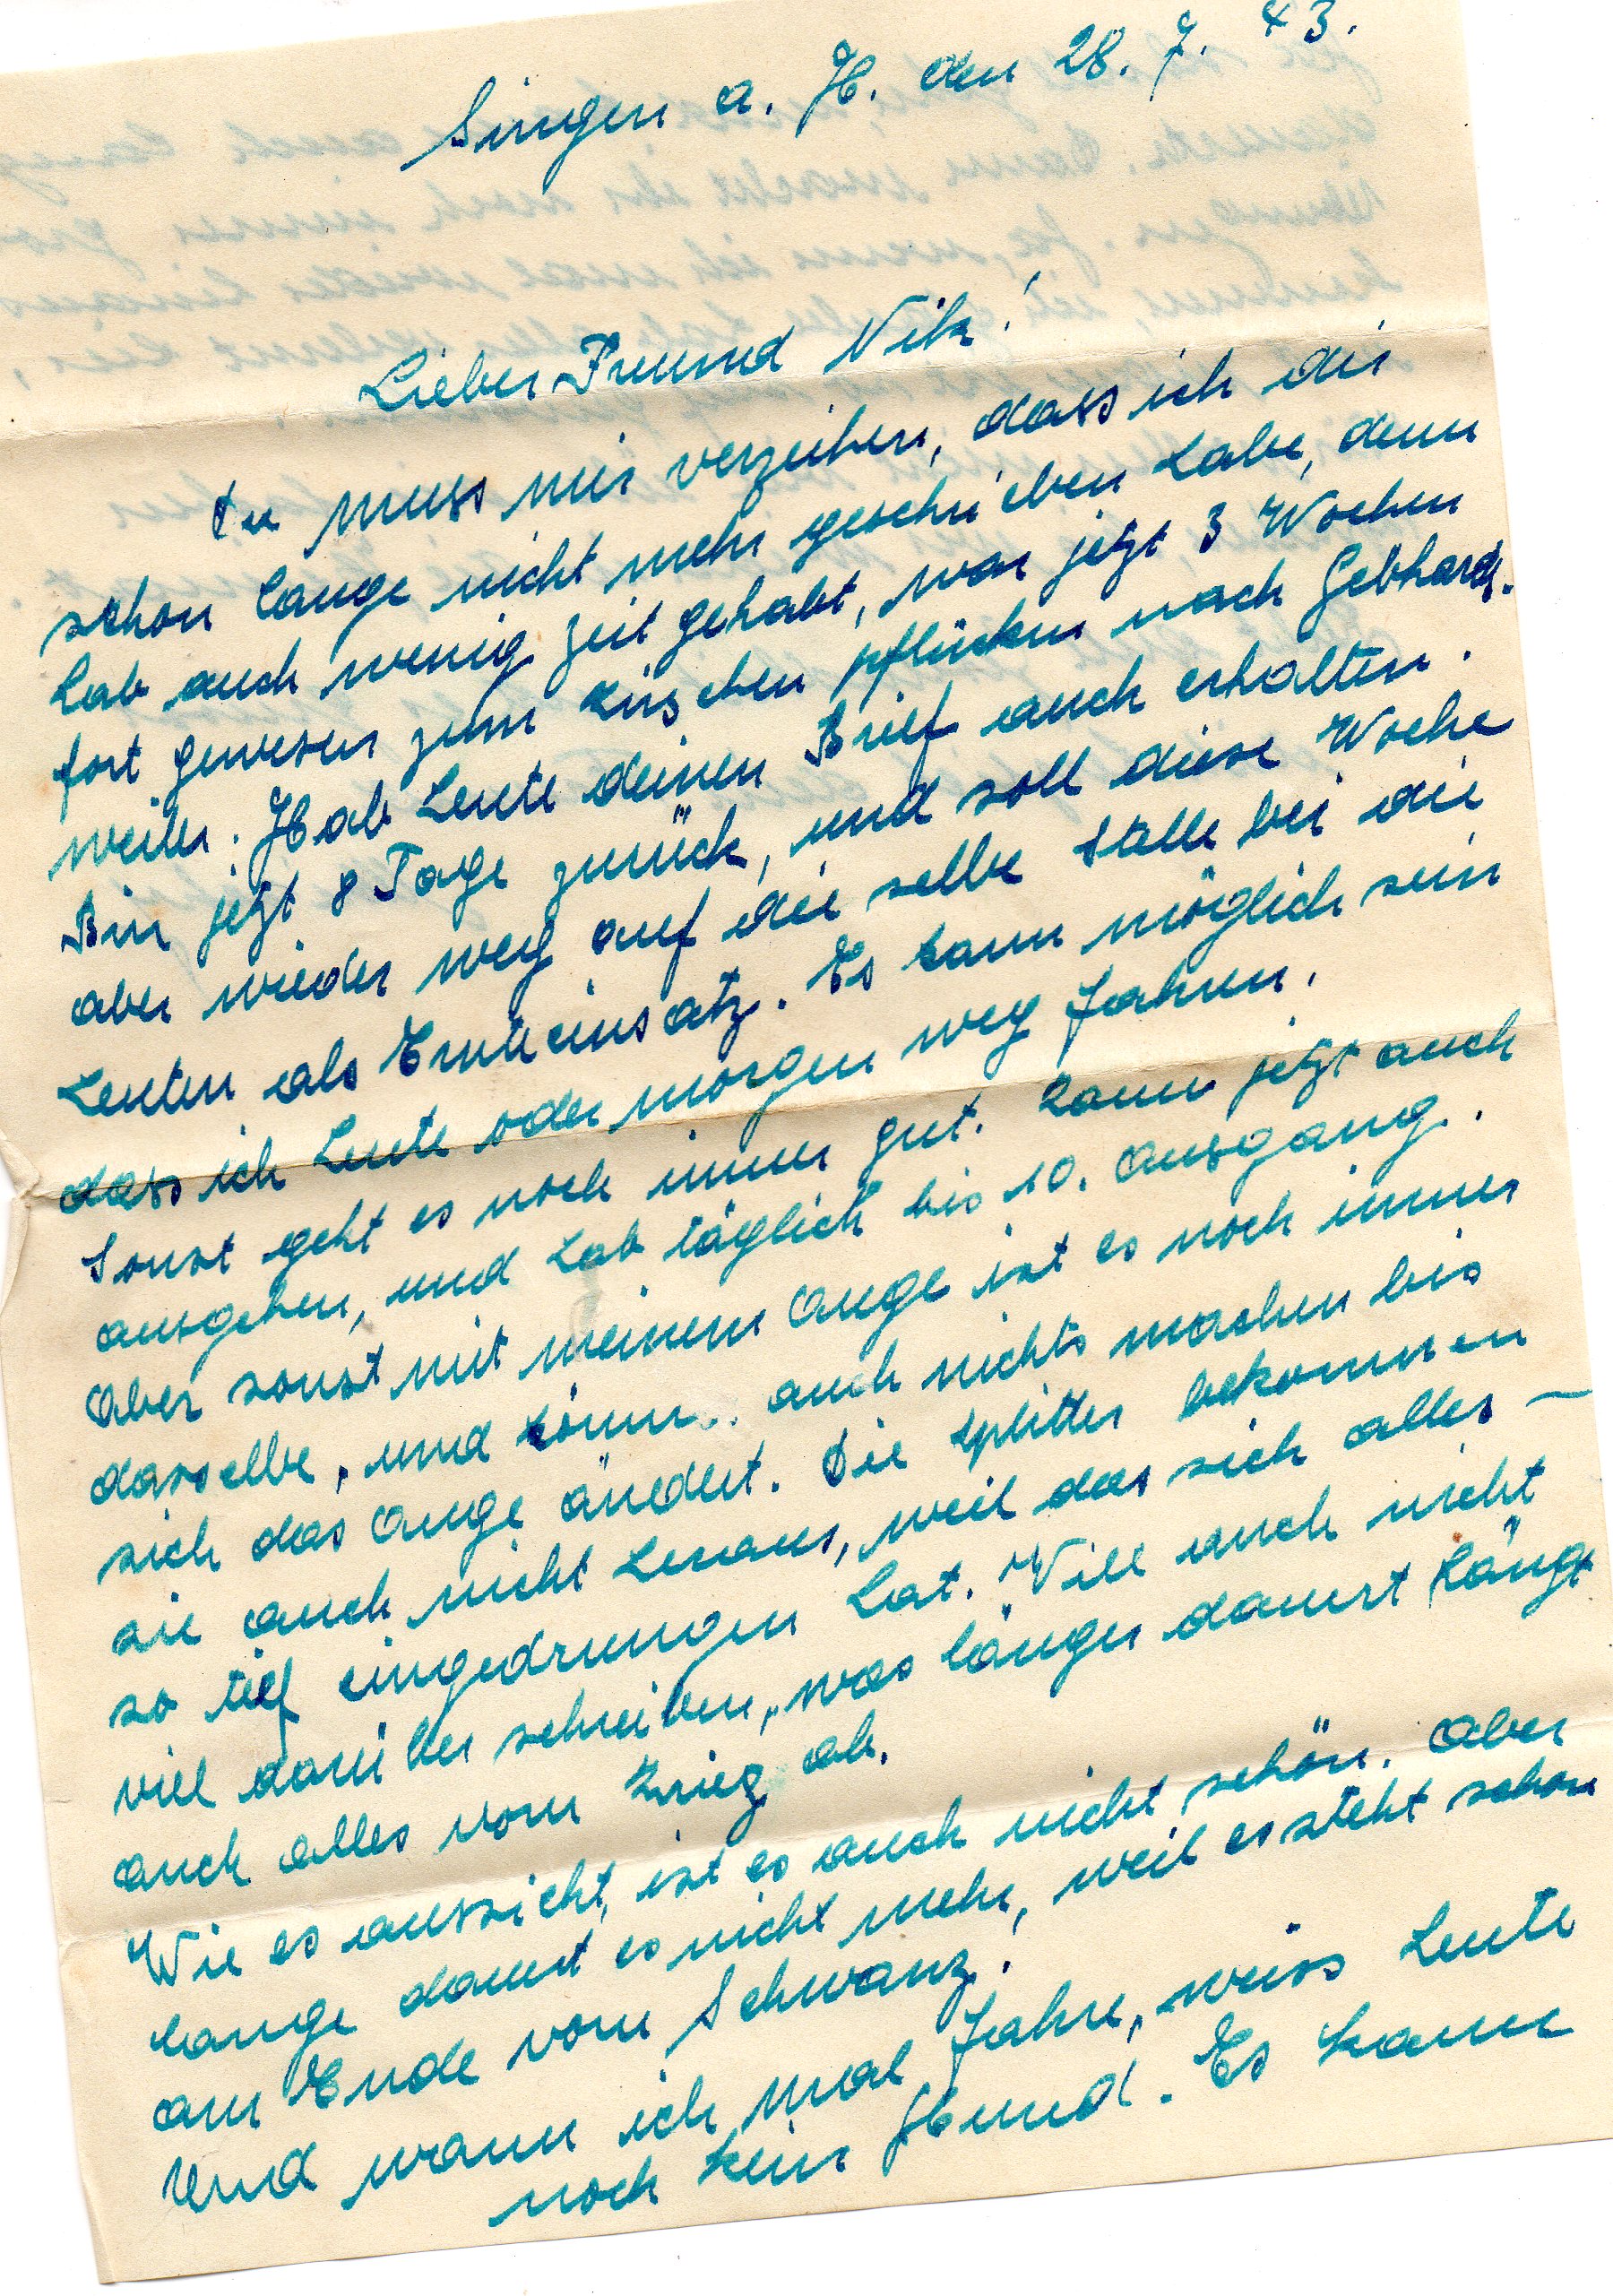 Singen a. H. den 28. 7. 43.
Lieber Freund Nik!
Du muss mir verzeihen, dass ich dir
schon lange nicht mehr geschrieben habe, denn
hab auch wenig zeit gehabt, war jetzt 3 Wochen
fort gewesen zum kirschen pflücken nach Gebhards-
weiler. Hab heute deinen Brief auch erhalten.
Bin jetzt 8 Tage zurück, und soll diese Woche
aber wieder weg auf die selbe Stelle bei die
Leuten als Ernteeinsatz. Es kann möglich sein
dass ich heute oder morgen weg fahren.
Sonst geht es noch immer gut. kann jetzt auch
ausgehen, und hab täglich bis 10. ausgang.
aber sonst mit meinem auge ist es noch immer
dasselbe, und könn.. auch nichts machen bis
sich das auge ändert. Die splitter bekommen
sie auch nicht heraus, weil das sich alles
so tief eingedrungen hat. Will auch nicht
viel darüber schreiben, was länger dauert hängt
auch alles vom krieg ab.
Wie es aussieht, ist es auch nicht schön. aber
lange dauert es nicht mehr, weil es steht schon
am Ende vom Schwanz!
Und wann ich mal fahre, weiss heute
noch kein Hund. Es kann